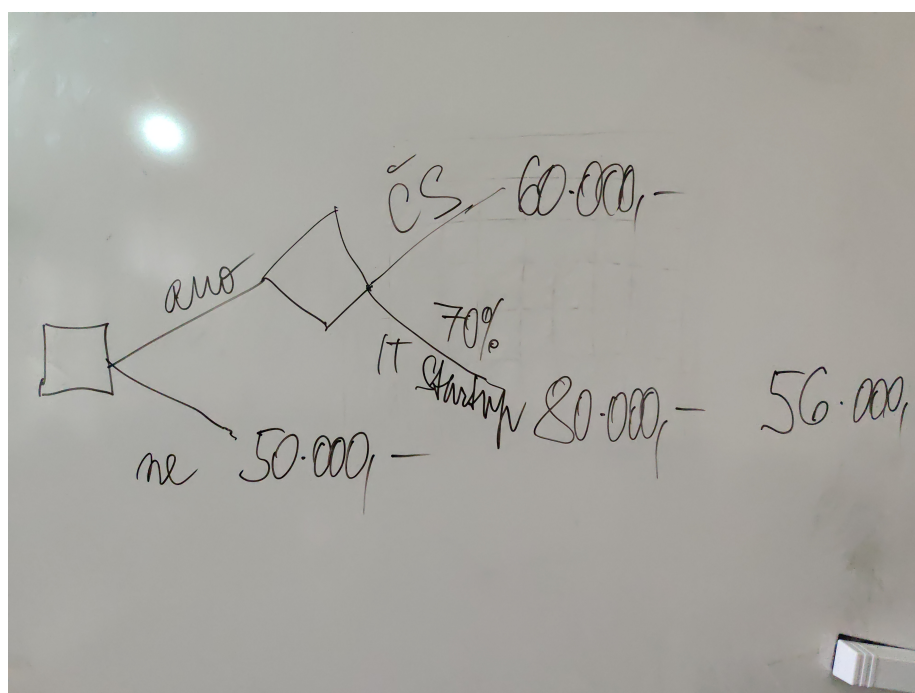 ČS 60.000,-
ano
70%
IT Startup 80.000,- 56.000,
ne 50.000,-